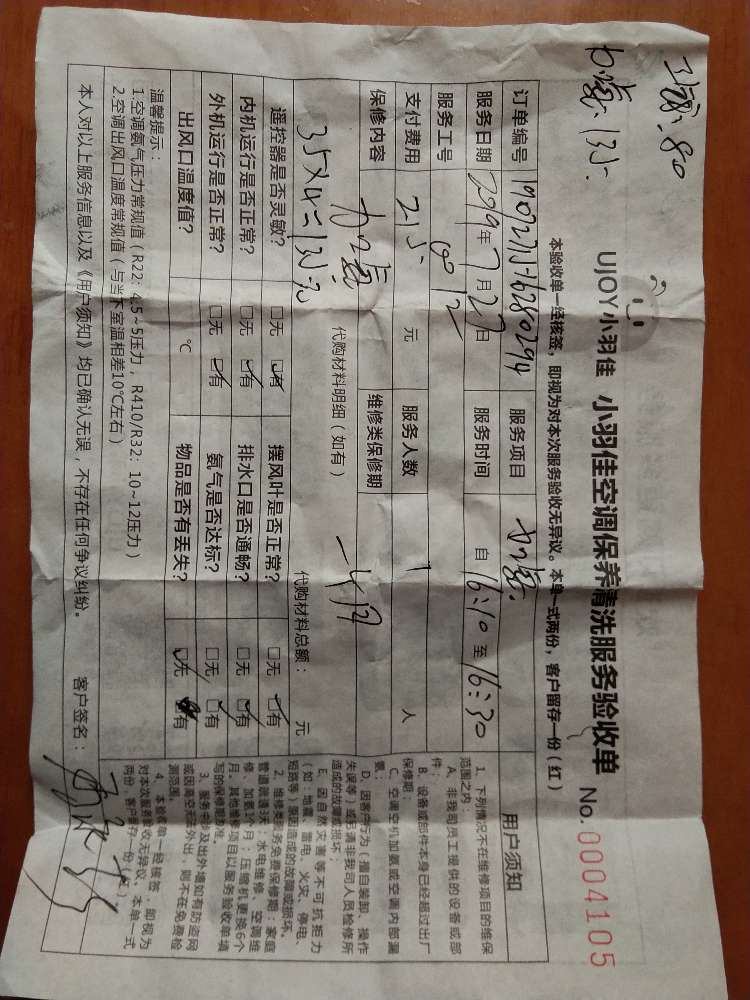 上藏: 80
加氨: 135
UJOY小羽佳 小羽佳空调保养清洗服务验收单 No. 0004105
本验收单一经核签，即视为对本次服务验收无异议。本单一式两份，客户留存一份（红）
订单编号 服务项目 加氨
服务日期 2019年7月27日 服务时间 自 16:10 至 16:30
服务工号 0812
支付费用 215 元 服务人数 1 人
保修内容 加氨 维修类保修期 一个月
35×4=135元 代购材料明细（如有） 代购材料总额： 元
遥控器是否灵敏？ □无 □有 摆风叶是否正常？ □无 □有
内机运行是否正常？ □无 □有 排水口是否通畅？ □无 □有
外机运行是否正常？ □无 □有 氨气是否达标？ □无 □有
出风口温度值？ ℃ 物品是否有丢失？ □无 □有
温馨提示：
1.空调氨气压力常规值（R22：4.5~5压力，R410/R32：10~12压力）
2.空调出风口温度常规值（与当下室温相差10℃左右）
本人对以上服务信息以及《用户须知》均已确认无误，不存在任何争议纠纷。 客户签名：
用户须知
1、下列情况不在维修项目的维保
范围之内：
A、非我司员工提供的设备或部
件；
B、设备或部件本身已经超过出厂
保修期；
C、空调空机加氨或空调内部漏
氨；
D、因客户行为（擅自装卸、操作
失误等）或因请非我司人员检修所
造成的故障或损坏；
E、因自然灾害等不可抗拒力
（如：地震、雷电、火灾、停电、
短路等）原因造成的故障或损坏。
2、维修类服务免费保修期：家庭
管道疏通3天；水电维修、空调维
修、加氨1个月；压缩机更换6个
月。其他维修项目以服务验收单填
写的保修期为准。
3、服务中涉及出外墙如有防盗网
或因高空无法外出，则不在免费检
测范围。
4、本验收单一经核签，即视为
对本次服务验收无异议、本单一式
两份，客户留存一份（红）。